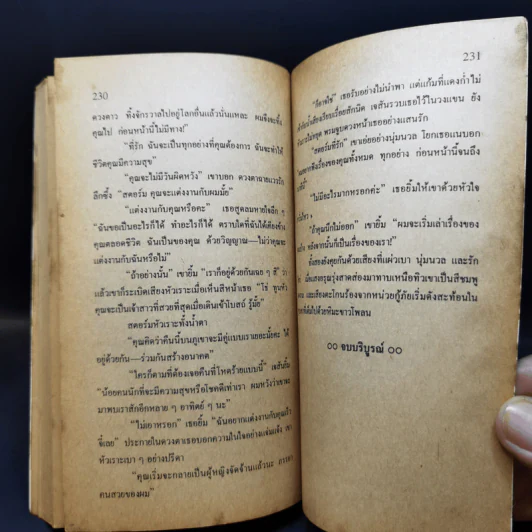 230
ดวงดาว ทิ้งจักรวาลไปอยู่โลกอื่นแล้วนั่นแหละ ผมจึงจะทิ้ง
คุณไป ก่อนหน้านี้ไม่มีทาง!”
“ที่รัก ฉันจะเป็นทุกอย่างที่คุณต้องการ ฉันจะทำให้
ชีวิตคุณมีความสุข”
“คุณจะไม่มีวันผิดหวัง” เขาบอก ดวงตาฉายแวว
ลึกซึ้ง “สตอร์ม คุณจะแต่งงานกับผมมั้ย”
“แต่งงานกับคุณหรือคะ” เธอสูดลมหายใจลึก ๆ
“ฉันขอเป็นอะไรก็ได้ ทำอะไรก็ได้ ตราบใดที่ฉันได้เคียงข้าง
คุณตลอดชีวิต ฉันเป็นของคุณ ด้วยวิญญาณ—ไม่ว่าคุณจะ
แต่งงานกับฉันหรือไม่”
“อ้าอย่างนั้น” เขายิ้ม “เราก็อยู่ด้วยกันเฉย ๆ ซี” ว่า
แล้วเขาก็ระเบิดเสียงหัวเราะเมื่อเห็นสีหน้าเธอ “โธ่ ทูนหัว
คุณจะเป็นเจ้าสาวที่สวยที่สุดเมื่อเดินเข้าโบสถ์ รู้มั้ย”
สตอร์มหัวเราะทั้งน้ำตา
“คุณคิดว่าคืนนี้บนภูเขาจะมีคู่แบบเราเยอะมั้ยคะ ได้
อยู่ด้วยกัน—ร่วมกันสร้างอนาคต”
“ใครก็ตามที่ต้องเจอคืนที่โหดร้ายแบบนี้” เจสันยิ้ม
“น้อยคนนักที่จะมีความสุขหรือโชคดีเท่าเรา ผมหวังว่าเขาจะ
มาพบเราสักอีกหลาย ๆ อาทิตย์ ๆ นะ”
“ไม่เอาหรอก” เธอยิ้ม “ฉันอยากแต่งงานกับคุณเร็ว
จี๋เลย” ประกายในดวงตาเธอบอกความในใจอย่างแจ่มแจ้ง
หัวเราะเบา ๆ อย่างปรีดา
“คุณเริ่มจะกลายเป็นผู้หญิงจัดจ้านแล้วนะ
คนสวยของผม”
231
“ก็อาจใช่” เธอรับอย่างไม่นำพา แต่แก้มที่แดงก่ำไม่
เรื่อยสักนิด เจสันรวบเธอไว้ในวงแขน ยัง
พรมจูบดวงหน้าเธออย่างแสนรัก
“สตอร์มที่รัก” เขาเอ่ยอย่างนุ่มนวล โยกเธอแนบอก
เรื่องของคุณทั้งหมด ทุกอย่าง ก่อนหน้านี้จนถึง
“ไม่มีอะไรมากหรอกค่ะ” เธอยิ้มให้เขาด้วยหัวใจ
“ถ้าคุณนึกไม่ออก” เขายิ้ม “ผมจะเริ่มเล่าเรื่องของ
หลังจากนั้นก็เป็นเรื่องของเรา!”
ทั้งสองยังคุยกันด้วยเสียงที่แผ่วเบา นุ่มนวล และรัก
เมื่อแสงอรุณรุ่งสาดส่องมาทาบเหนือทิวเขาเป็นสีชมพู
และเสียงตะโกนร้องจากหน่วยกู้ภัยเริ่มดังสะท้อนใน
ไปด้วยหิมะขาวโพลน
๐๐ จบบริบูรณ์ ๐๐